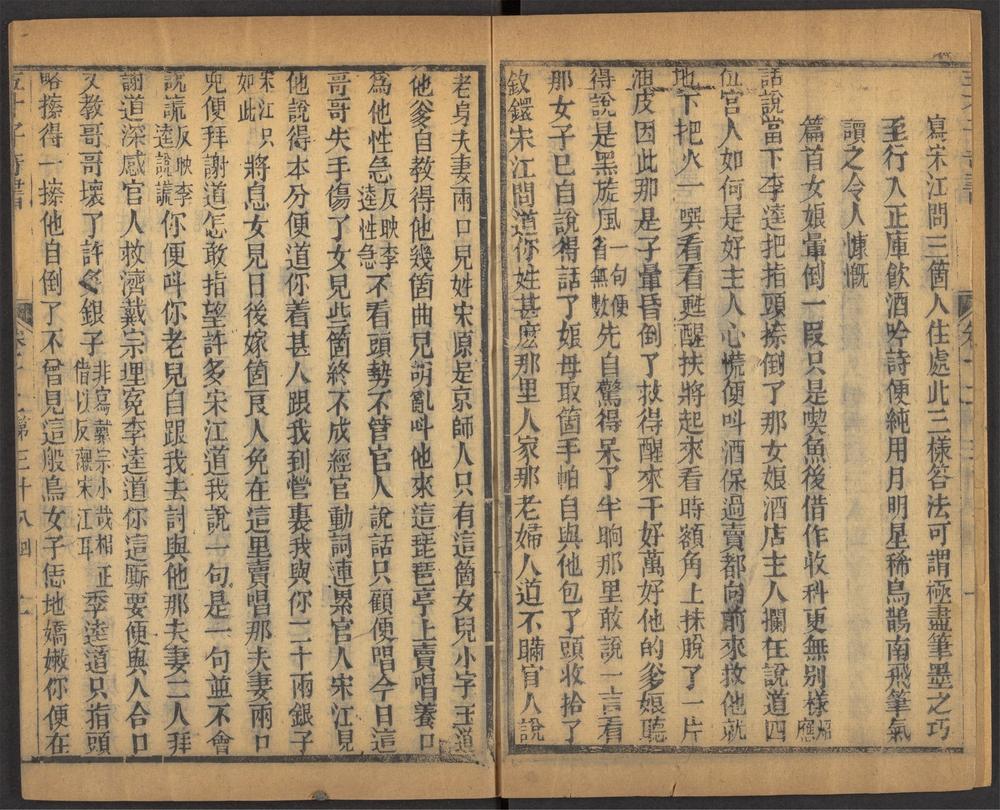 寫宋江問三箇人住處此三樣答法可謂極盡筆墨之巧
至行入正庫飲酒吟詩便純用月明星稀烏鵲南飛筆氣
讀之令人慷慨
篇首女娘暈倒一叚只是喫魚後借作收科更無別樣照應
話說當下李逵把指頭捺倒了那女娘酒店主人攔在說道四
位官人如何是好主人心慌便叫酒保過賣都向前來救他就
地下把水一噀看看甦醒扶將起來看時額角上抹脫了一片
油皮因此那是子暈昏倒了救得醒來千好萬好他的爹娘聽
得說是黑旋風一句便省無數先自驚得呆了半晌那里敢說一言看
那女子已自說得話了娘母取箇手帕自與他包了頭收拾了
釵鐶宋江問道你姓甚麽那里人家那老婦人道不瞞官人說
老身夫妻兩口兒姓宋原是京師人只有這箇女兒小字玉蓮
他爹自教得他幾箇曲兒胡亂叫他來這琵琶亭上賣唱養口
爲他性急反映李逵性急不看頭勢不管官人說話只顧便唱今日這
哥哥失手傷了女兒些箇終不成經官動詞連累官人宋江見
他說得本分便道你着甚人跟我到營裏我與你二十兩銀子
宋江只如此將息女兒日後嫁箇良人免在這里賣唱那夫妻兩口
兒便拜謝道怎敢指望許多宋江道我說一句是一句並不會
說謊反映李逵說謊你便叫你老兒自跟我去討與他那夫妻二人拜
謝道深感官人救濟戴宗埋冤李逵道你這厮要便與人合口
又教哥哥壞了許多銀子非寫戴宗小哉相正借以反襯宋江耳李逵道只指頭
略擦得一擦他自倒了不曾見這般鳥女子恁地嬌嫩你便在
五才子奇書
第三十八回